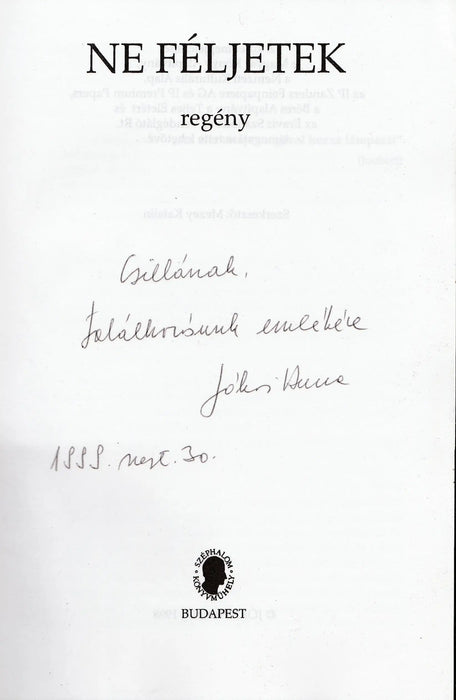 NE FÉLJETEK
regény
Csillának,
találkozásunk emlékére
Jókai Anna
1999. szept. 30.
SZÉPHALOM
KÖNYVMŰHELY
BUDAPEST